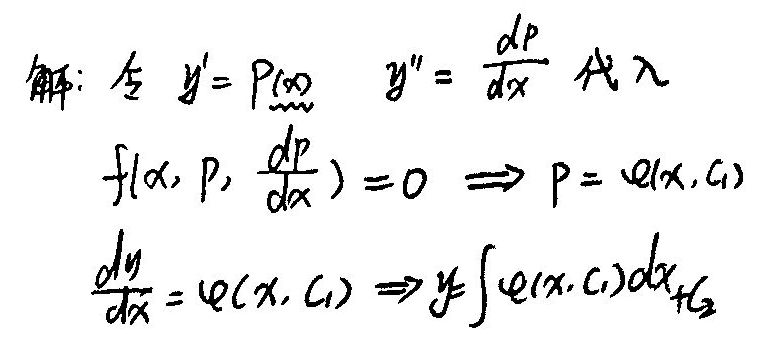 解: 令 y' = P(x) y'' = dp/dx 代入
f(x, p, dp/dx) = 0 ⟹ p = φ(x, C₁)
dy/dx = φ(x, C₁) ⟹ y = ∫φ(x, C₁)dx + C₂